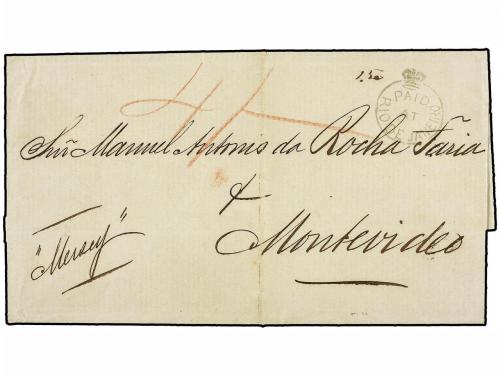 4/-
PAID AT RIO DE JANEIRO
Snr Manuel Antonio da Rocha Faria
Montevideo
"Mersey"